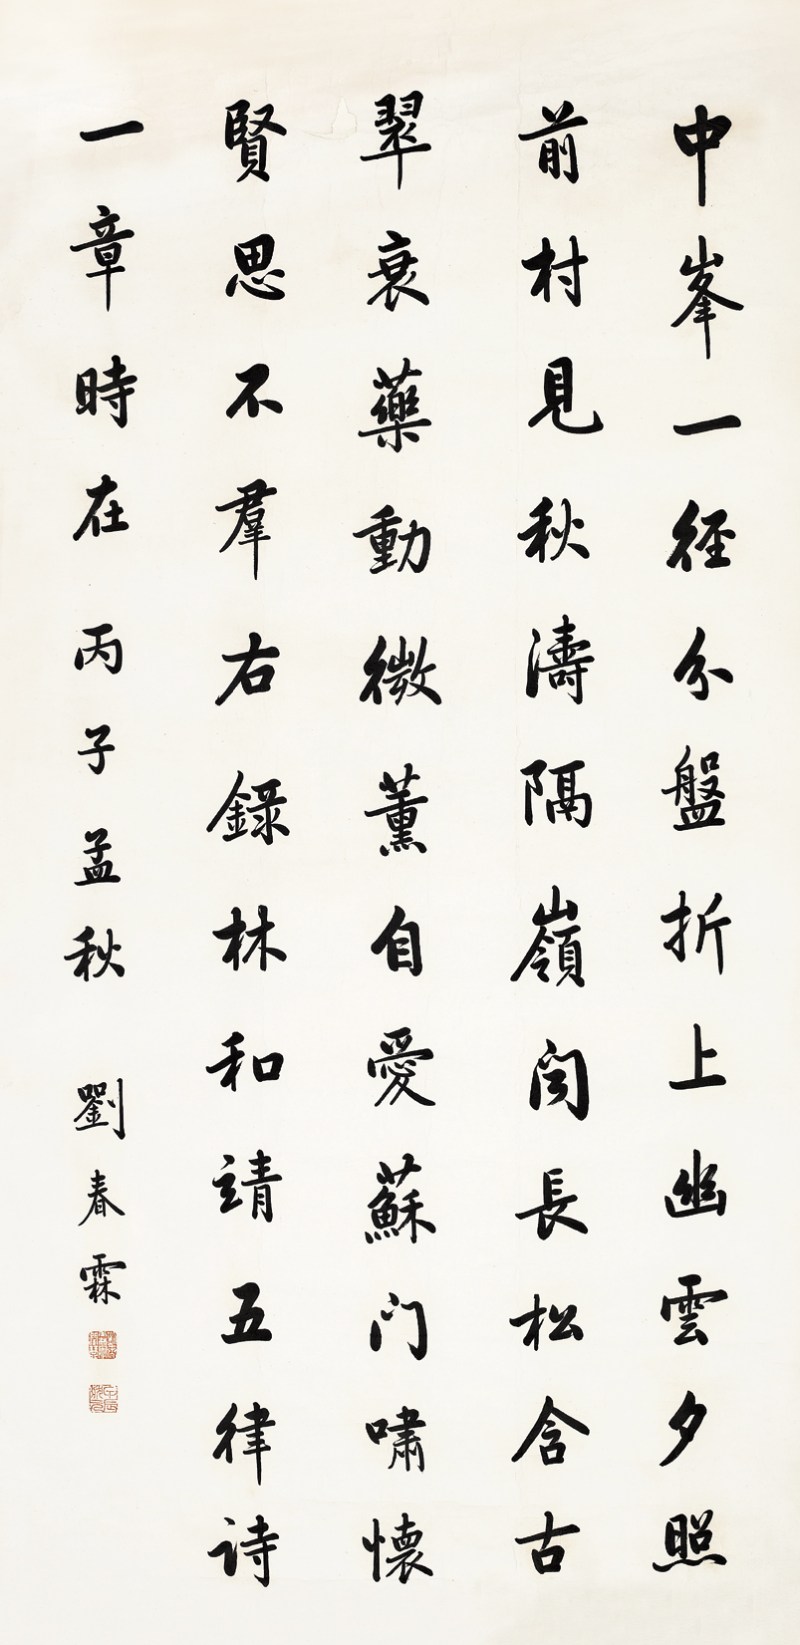 中峯一徑分盤折上幽雲夕照
前村見秋濤隔嶺闻長松含古
翠衰藥動微薰自愛蘇门嘯懷
賢思不羣右錄林和靖五律诗
一章時在丙子孟秋劉春霖